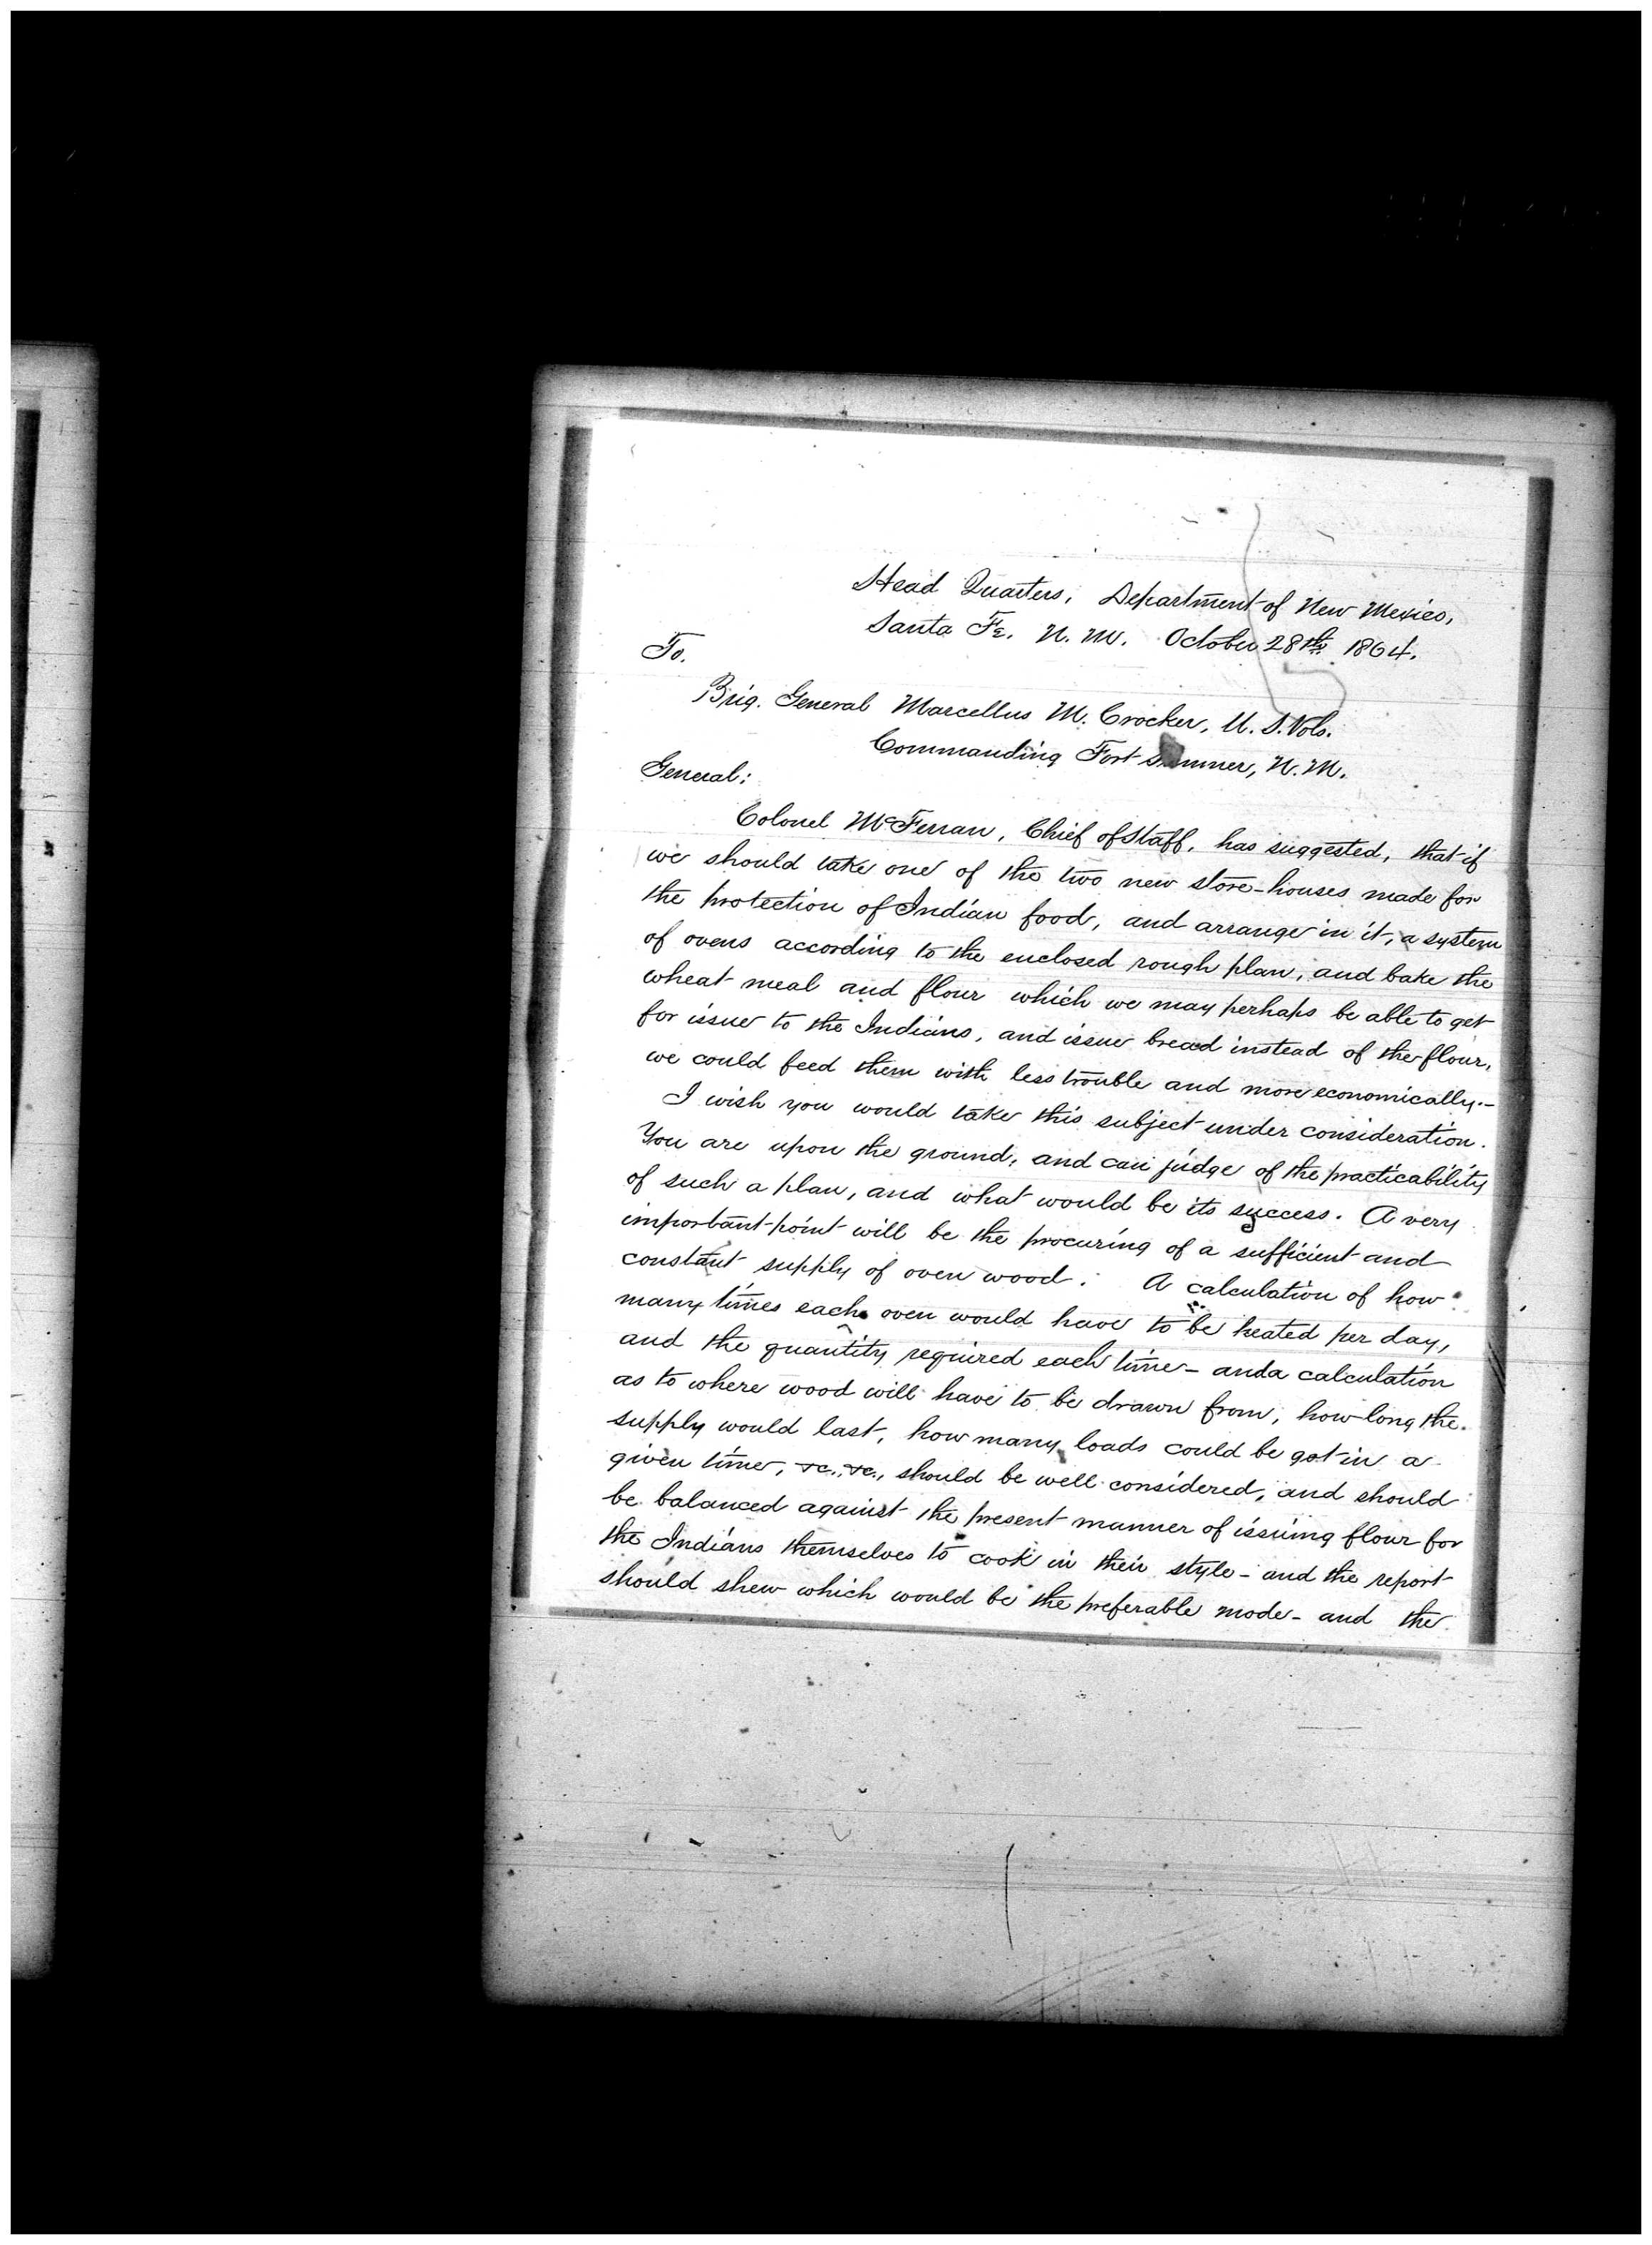 Head Quarters, Department of New Mexico,
Santa Fe, N. M. October 28th 1864.
To.
Brig. General Marcellus M. Crocker, U. S. Vols.
Commanding Fort Sumner, N. M.
General:
Colonel McFerran, Chief of Staff, has suggested, that if
we should take one of the two new store-houses made for
the protection of Indian food, and arrange in it, a system
of ovens according to the enclosed rough plan, and bake the
wheat meal and flour which we may perhaps be able to get
for issue to the Indians, and issue bread instead of the flour,
we could feed them with less trouble and more economically.-
I wish you would take this subject under consideration.
You are upon the ground, and can judge of the practicability
of such a plan, and what would be its success. A very
important point will be the procuring of a sufficient and
constant supply of oven wood. A calculation of how
many times each oven would have to be heated per day,
and the quantity required each time - and a calculation
as to where wood will have to be drawn from, how long the
supply would last, how many loads could be got in a
given time, &c., &c., should be well considered, and should
be balanced against the present manner of issuing flour for
the Indians themselves to cook in their style - and the report
should shew which would be the preferable mode - and the